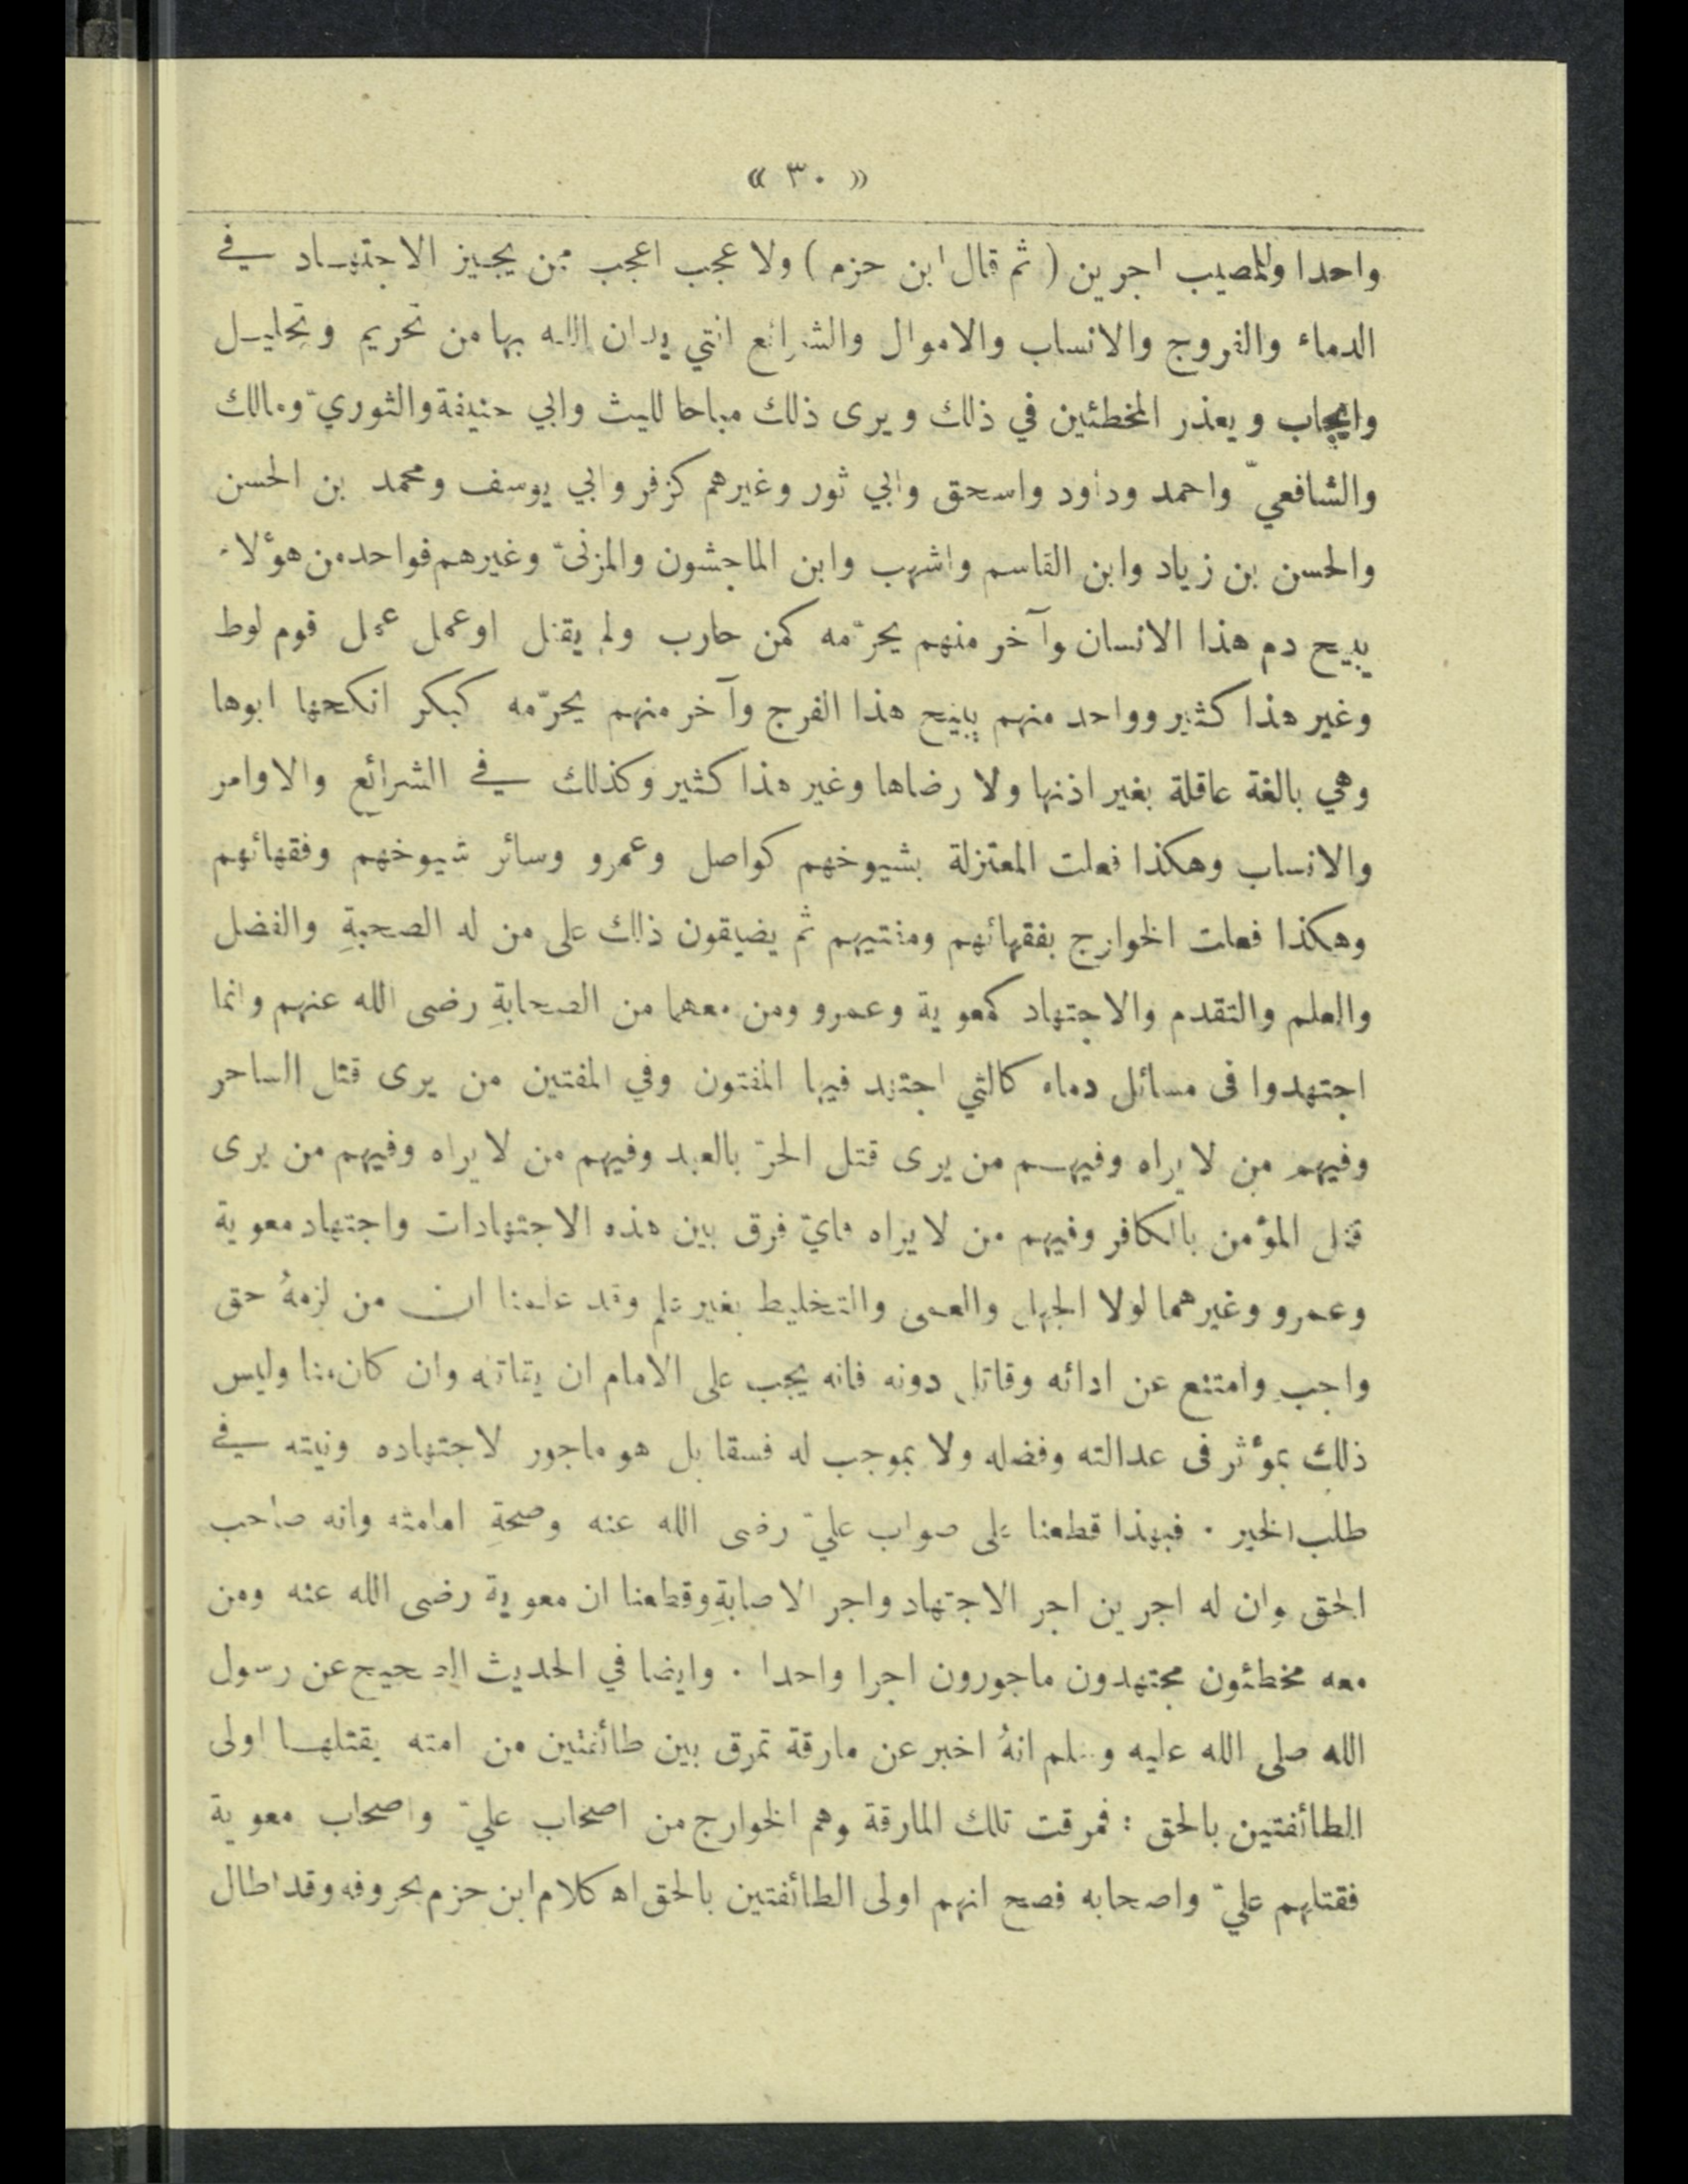 « ٣٠ »
واحدا وللمصيب اجرين ( ثم قال ابن حزم ) ولا عجب اعجب ممن يجيز الاجتهاد في
الدماء والفروج والانساب والاموال والشرائع التي يدان الله بها من تحريم وتحليل
وايجاب ويعذر المخطئين في ذلك ويرى ذلك مباحا لليث وابي حنيفة والثوريّ ومالك
والشافعيّ واحمد وداود واسحق وابي ثور وغيرهم كزفر وابي يوسف ومحمد بن الحسن
والحسن بن زياد وابن القاسم واشهب وابن الماجشون والمزنىّ وغيرهم فواحد من هؤلاء
يبيح دم هذا الانسان وآخر منهم يحرّمه كمن حارب ولم يقتل او عمل عمل قوم لوط
وغير هذا كثير وواحد منهم يبيح هذا الفرج وآخر منهم يحرّمه كبكر انكحها ابوها
وهي بالغة عاقلة بغير اذنها ولا رضاها وغير هذا كثير وكذلك في الشرائع والاوامر
والانساب وهكذا فعلت المعتزلة بشيوخهم كواصل وعمرو وسائر شيوخهم وفقهائهم
وهكذا فعلت الخوارج بفقهائهم ومفتيهم ثم يضيقون ذلك على من له الصحبةِ والفضل
والعلم والتقدم والاجتهاد كمعوية وعمرو ومن معهما من الصحابةِ رضى الله عنهم وانما
اجتهدوا فى مسائل دماء كالتي اجتهد فيها المفتون وفي المفتين من يرى قتل الساحر
وفيهم من لا يراه وفيهم من يرى قتل الحرّ بالعبد وفيهم من لا يراه وفيهم من يرى
قتل المؤمن بالكافر وفيهم من لا يراه فايّ فرق بين هذه الاجتهادات واجتهاد معوية
وعمرو وغيرهما لولا الجهل والعمى والتخليط بغير علم وقد علمنا ان من لزمهُ حق
واجب وامتنع عن ادائه وقاتل دونه فانه يجب على الامام ان يقاتله وان كان منا وليس
ذلك بمؤثر فى عدالته وفضله ولا بموجب له فسقا بل هو ماجور لاجتهاده ونيته في
طلب الخير . فبهذا قطعنا على صواب عليّ رضى الله عنه وصحةِ امامته وانه صاحب
الحق وان له اجرين اجر الاجتهاد واجر الاصابةِ وقطعنا ان معوية رضى الله عنه ومن
معه مخطئون مجتهدون ماجورون اجرا واحدا . وايضا في الحديث الصحيح عن رسول
الله صلى الله عليه وسلم انهُ اخبر عن مارقة تمرق بين طائفتين من امته يقتلها اولى
الطائفتين بالحق : فمرقت تلك المارقة وهم الخوارج من اصحاب عليّ واصحاب معوية
فقتلهم عليّ واصحابه فصح انهم اولى الطائفتين بالحق اه كلام ابن حزم بحروفه وقد اطال